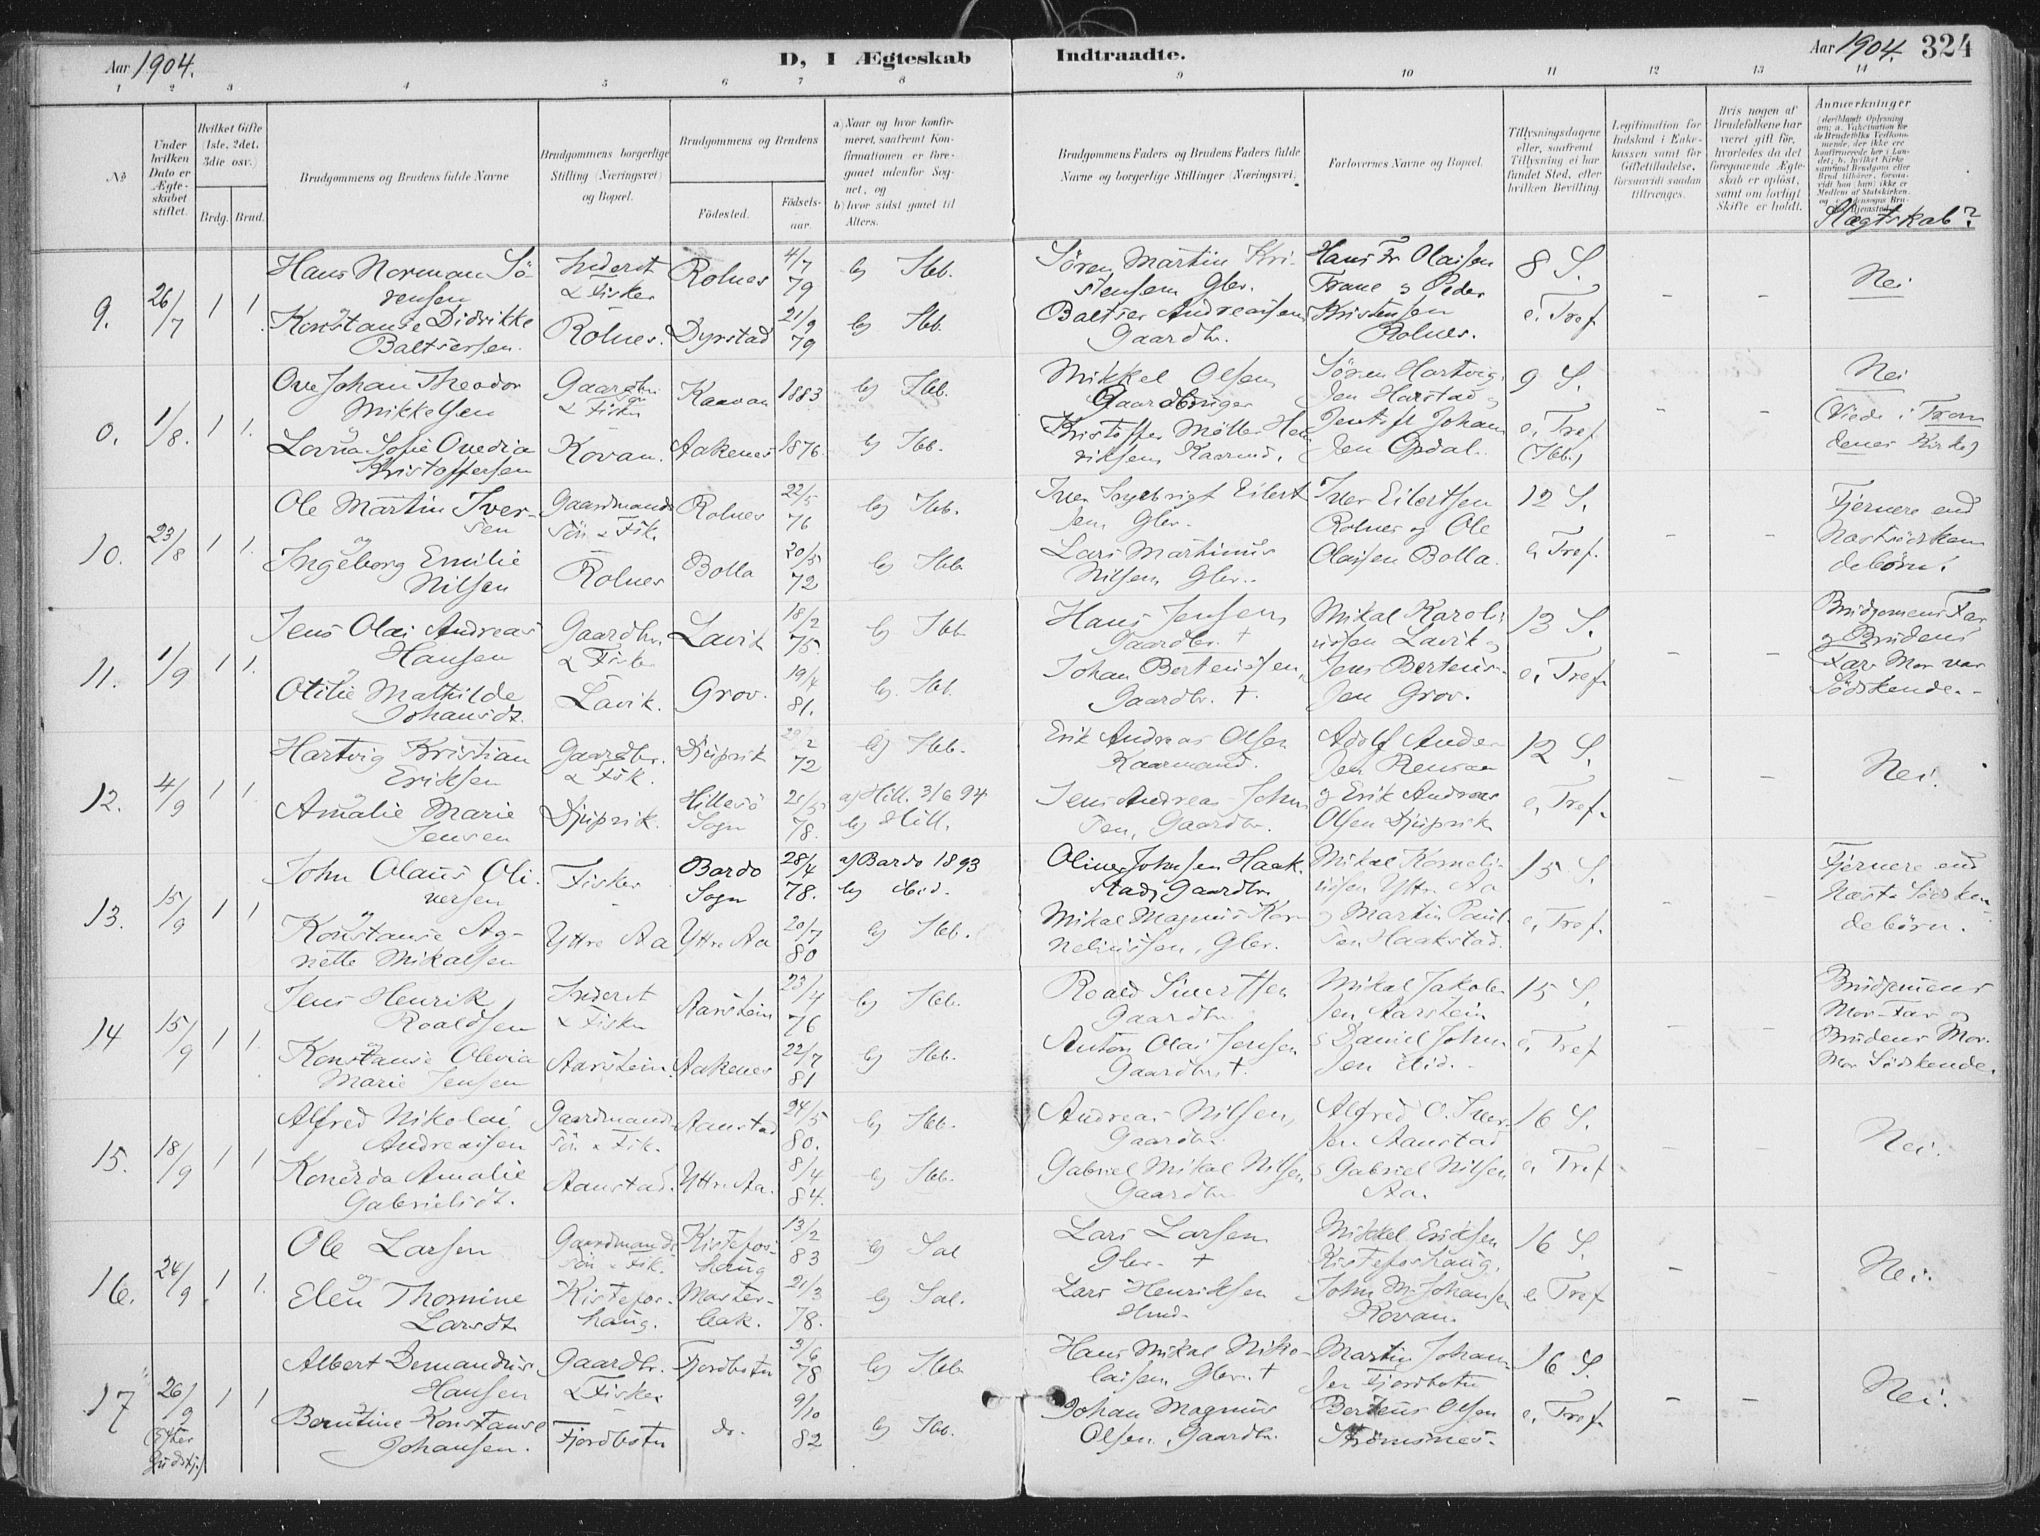 Aar 1904.
D, I Ægteskab Indtraadte.
Aar 1904. 324
1 2 3 4 5 6 7 8 9 10 11 12 13 14
No
Under hvilken Dato er Ægteskabet stiftet.
Hvilket Gifte (1ste, 2det, 3die osv.)
Brdg. Brud.
Brudgommens og Brudens fulde Navne
Brudgommens borgerlige Stilling (Næringsvei) og Bopæl.
Brudgommens og Brudens
Fødested.
Fødselsaar.
a) Naar og hvor konfirmeret, saafremt Konfirmationen er foregaaet udenfor Sognet, og
b) hvor sidst gaaet til Alters.
Brudgommens Faders og Brudens Faders fulde Navne og borgerlige Stillinger (Næringsvei).
Forlovernes Navne og Bopæl.
Tillysningsdagene eller, saafremt Tillysning ei har fundet Sted, efter hvilken Bevilling.
Legitimation for Indskud i Enkekassen samt for Giftetilladelse, forsaavidt saadan tiltrænges.
Hvis nogen af Brudefolkene har været gift før, hvorledes da det foregaaende Ægteskab er opløst, samt om lovligt Skifte er holdt.
Anmærkninger
Slægtskab?
9. 26/7 1 1.
Hans Norman Sørensen
Inderst & Fisker
Rolnes 4/7 79 b) Ibb.
Søren Martin Kristensen Gbr.
Hans Fr. Olaisen Trane og Peder Kristensen Rolnes.
8 S. e. Tref - - Nei
og Konstanse Didrikke Baltsersen.
Rolnes. Dyrstad 21/9 79 b) Ibb.
Baltser Andreassen Gaardbr.
0. 1/8. 1 1.
Ove Johan Theodor Mikkelsen
Gaardbr. & Fisker
Kaavan 1883 b) Ibb.
Mikkel Olsen Gaardbruger
Søren Hartvigsen Harstad og Jentoft Johansen Opdal.
9 S. e. Tref (Ibb.) - - Nei
(Viede i Trondenes Kirke)
og Lovna Sofie Ovedia Kristoffersen
Kovan. Aakenes 1876. b) Ibb.
Kristoffer Møller Henriksen Kaarmd.
10. 23/8 1 1.
Ole Martin Iversen
Gaardmands Søn & Fisk.
Rolnes 22/5 76 b) Ibb.
Iver Ingebrigt Eilertsen Gbr.
Iver Eilertsen Rolnes og Ole Olaisen Bolla.
12 S. e. Tref.
Fjernere end Næstsødskendebørn.
og Ingeborg Emilie Nilsen
Rolnes Bolla 20/5 72 b) Ibb
Lars Martinus Nilsen Gbr.
11. 1/9 1 1.
Jens Olai Andreas Hansen
Gaardbr. & Fisker
Lavik 18/2 75. b) Ibb
Hans Jensen, Gaardbr. †
Mikal Karolinssen Lavik og Jens Bertensen Grov.
13 S. e. Tref. - -
Brudgomens Far og Brudens Far Mor var Sødskende.
og Otilie Mathilde Johansdt.
Lavik. Grov. 19/4 81. b) Ibb.
Johan Bertensen, Gaardbr. †.
12. 4/9 1 1.
Hartvig Kristian Eriksen
Gaardbr. & Fisk.
Djupvik 2 72 b) Ibb.
Erik Andreas Olsen Kaarmand.
Adolf Andersen Rensaa og Erik Andreas Olsen Djupvik
12 S. e. Tref. - - Nei.
og Amalie Marie Jensen
Djupvik. Hillesø Sogn 21/5 78. a) Hill. 3/6 94 b) Hill.
Jens Andreas Johnsen, Gaardbr.
13. 15/9 1 1.
John Olaus Oliversen
Fisker
Bardo Sogn 28/4 78. a) Bardo 1893 b) ibid.
Oliver Johnsen Haakstad, Gaardbr.
Mikal Korneliussen Yttre Aa og Martin Paulsen Haakstad.
15 S. e. Tref. - -
Fjernere end Næste Sødskendebørn.
og Konstanse Agnette Mikalsen
Yttre Aa Yttre Aa 20/7 80 b) Ibb.
Mikal Magnus Korneliussen, Gbr.
14 15/9 1 1.
Jens Henrik Roaldsen
Inderst & Fisker
Aarstein 23/4 76 b) Ibb.
Roald Sivertsen Gaardbr.
Mikal Jakobsen Aarstein og Daniel Johnsen ibid.
15 S. e. Tref - -
Brudgomens Mor-Far og Brudens Mor-Mor Sødskende.
og Konstanse Olevia Marie Jensen
Aarstein. Aakenes 22/7 81 b) Ibb.
Anton Olai Jensen Gaardbr. †.
15. 18/9 1 1
Alfred Nikolai Andreassen
Gaardmands Søn & Fisk.
Aanstad 24/5 80. b) Ibb.
Andreas Nilsen, Gaardbr.
Alfred O. Iversen Aanstad og Gabriel Nilsen Aa.
16 S. e. Tref. - - Nei.
og Konerda Amalie Gabrielsdt.
Aanstad. Yttre Aa. 8/4 84. b) Ibb.
Gabriel Mikal Nilsen Gaardbr.
16. 24/9 1 1.
Ole Larsen
Gaardmands Søn & Fisk.
Kistefoshaug 13/2 83 b) Sal
Lars Larsen Gbr. †
Mikkel Eriksen Kistefoshaug. John M. Johansen Kovan.
16 S. e. Tref - - Nei.
og Elen Thomine Larsdt.
Kistefoshaug. Masterbak. 21/3 78. b) Sal.
Lars Henriksen Hmd.
17 26/9 1 1
(Efter Gudstj.)
Albert Demandus Hansen
Gaardbr. & Fisker
Fjordbotn 3/6 78 b) Ibb
Hans Mikal Nikolaisen Gbr. †
Martin Johansen Fjordbotn Berteus Olsen Strømsnes.
16 S. e. Tref. - - Nei.
og Berntine Konstanse Johansen.
Fjordbotn do. 9/10 82 b) Ibb.
Johan Magnus Olsen, Gaardbr.